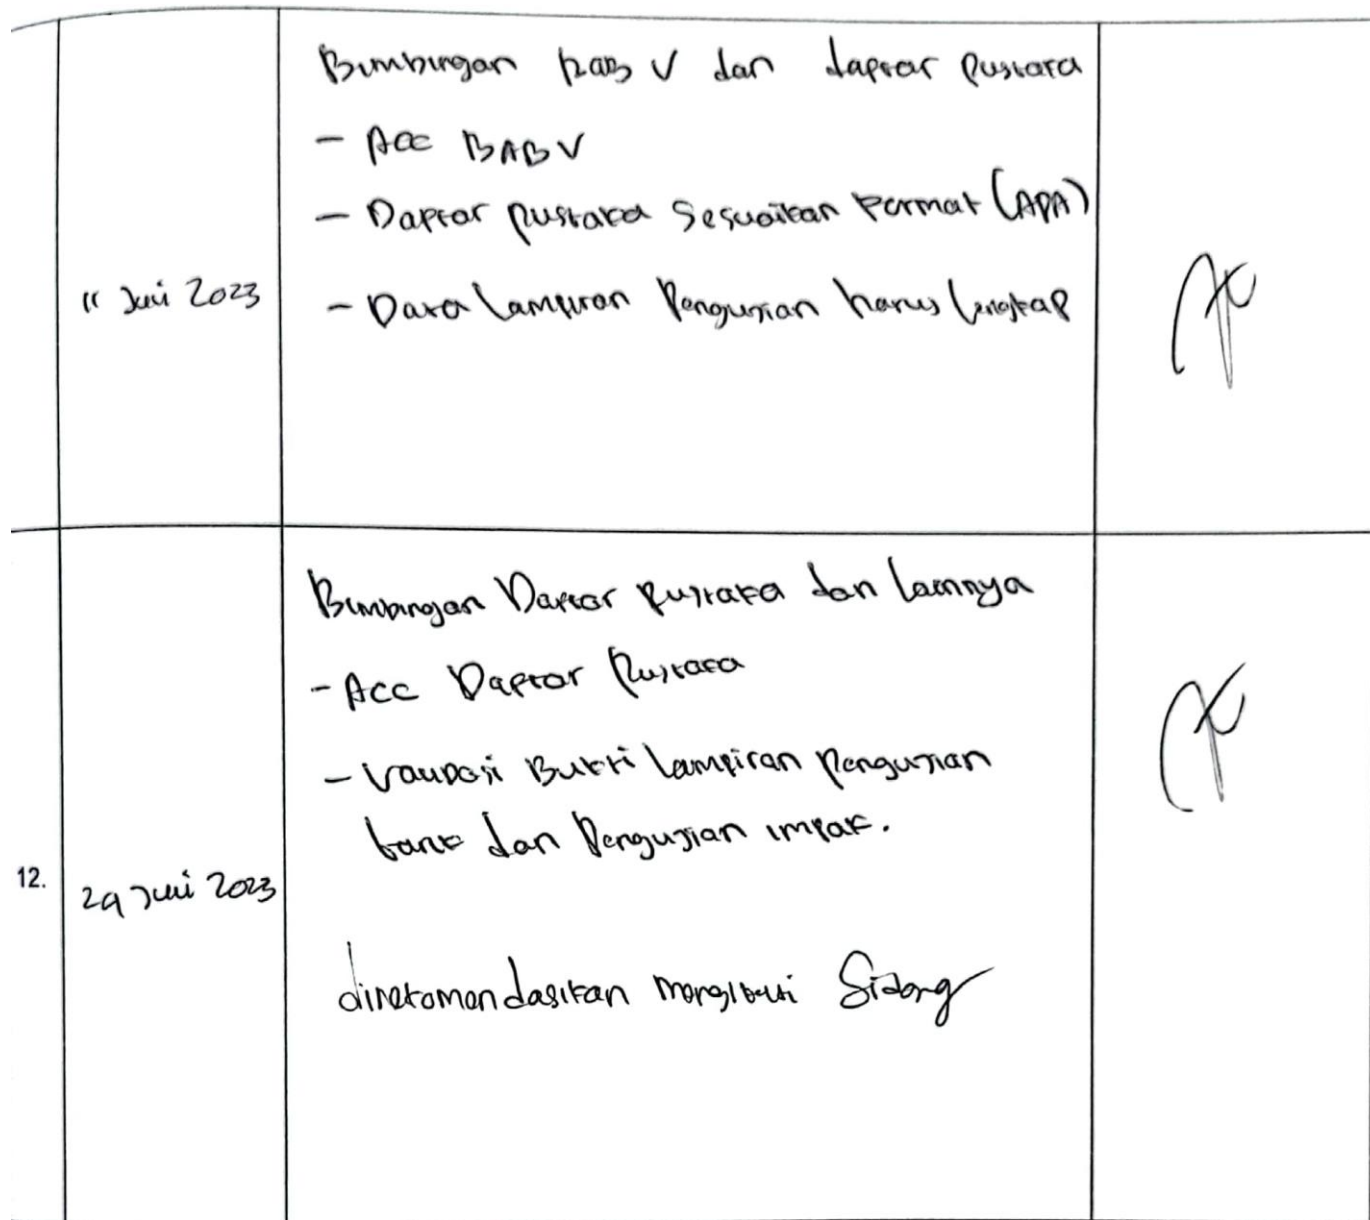 Bimbingan bab V dan daftar pustaka
- Acc BAB V
- Daftar pustaka Sesuaikan Format (APA)
11 Juni 2023
- Data Lampiran Pengujian harus lengkap
Bimbingan Daftar Pustaka dan lainnya
- Acc Daftar Pustaka
- Validasi Bukti lampiran pengujian
tarik dan Pengujian impak.
12.
29 Juni 2023
direkomendasikan mengikuti Sidang